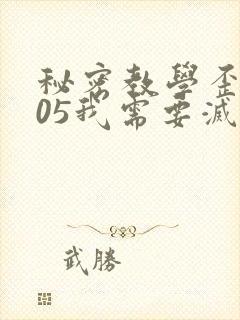 秘密教學歪
05我需要滅
武勝